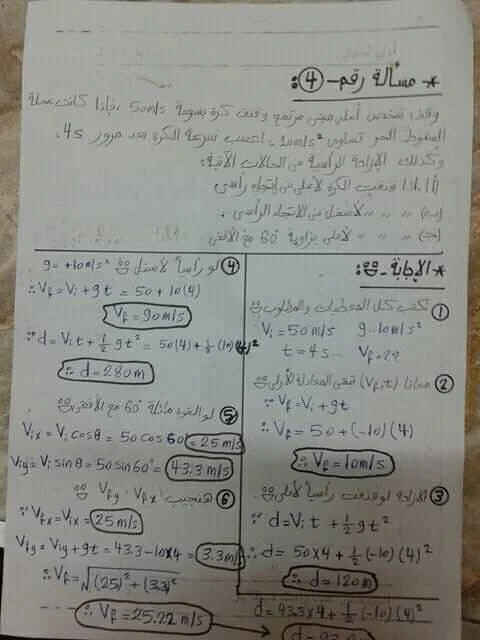 * مسألة رقم - ④:
وقف شخص أعلى مبنى مرتفع وقذف كرة بسرعة 50m/s، فإذا كانت عجلة
السقوط الحر تساوى 10m/s²، احسب سرعة الكرة بعد مرور 4s،
وكذلك الإزاحة الرأسية فى الحالات الآتية:
(أ) إذا قذفت الكرة لأعلى فى إتجاه رأسى
(ب) " " " لأسفل فى الاتجاه الرأسى.
(جـ) " " " لأعلى بزاوية 60° مع الأفقى
* الإجابة -:
① نكتب كل المعطيات والمطلوب
Vi = 50m/s g = -10m/s²
t = 4s... Vf = ??
② معانا (Vi, t) تبقى المعادلة الأولى
∵ Vf = Vi + gt
∴ Vf = 50 + (-10)(4)
∴ Vf = 10m/s
③ الإزاحة لو قذفت رأسياً لأعلى
∵ d = Vi t + ½ g t²
∴ d = 50×4 + ½ (-10)(4)²
∴ d = 120m
④ لو رأسياً لأسفل g = +10m/s²
∴ Vf = Vi + gt = 50 + 10(4)
Vf = 90m/s
∵ d = Vi t + ½ g t² = 50(4) + ½ (10)(4)²
∴ d = 280m
⑤ لو القوة مائلة 60° مع الأفقى
Vix = Vi cosθ = 50 cos 60 = 25 m/s
Viy = Vi sinθ = 50 sin 60° = 43.3 m/s
⑥ هنجيب Vfx, Vfy
∵ Vfx = Vix = 25 m/s
Vfy = Viy + gt = 43.3 - 10×4 = 3.3 m/s
∴ Vf = √(25)² + (3.3)²
∴ Vf = 25.22 m/s
d = 43.3×4 + ½ (-10)(4)²